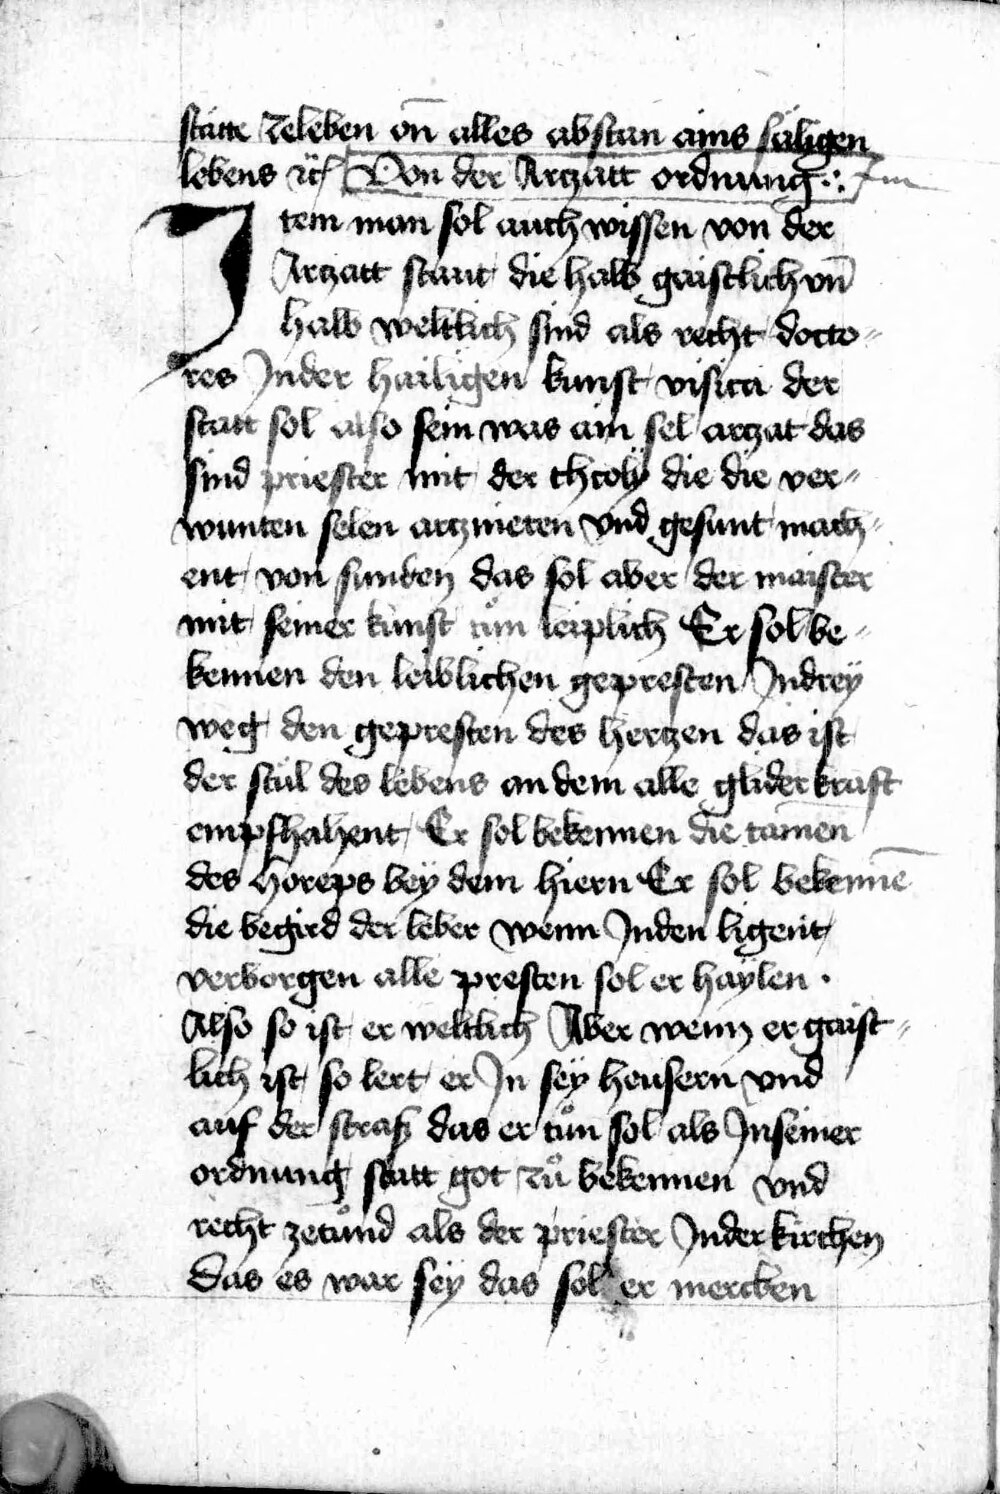 stätte zeleben on̄ alles abstan ains säligen
lebens ⁊c̈ Von der Artzatt ordnung ∴
Item man sol auch wissen von der
Artzatt staut die halb gaistlich vn̄
halb weltlich sind als recht docto-
res Jnder hailigen kunst visica der
statt sol also sein was ain sel artzat das
sind priester mit der theolÿ die die ver-
wunten selen artznieten vnd gesunt mach-
ent von sunden das sol aber der maister
mit seiner kunst tůn leiplich Er sol be-
kennen den leiblichen gepresten Jndreÿ
weg den gepresten des hertzen das ist
der stůl des lebens an dem alle glider kraft
empfhahent Er sol bekennen die tāmen
des horeps beÿ dem hiern Er sol bekennē
die begird der leber wenn Jnden ligent
verborgen alle presten sol er haÿlen .
Also so ist er weltlich Aber wenn er gaist-
lich ist so lert er Jn seÿ heusern vnd
auf der straß das er tůn sol als Jnseiner
ordnung statt got zů bekennen vnd
recht zetůnd als der priester Jnder kirchen
Das es war seÿ das sol er mercken